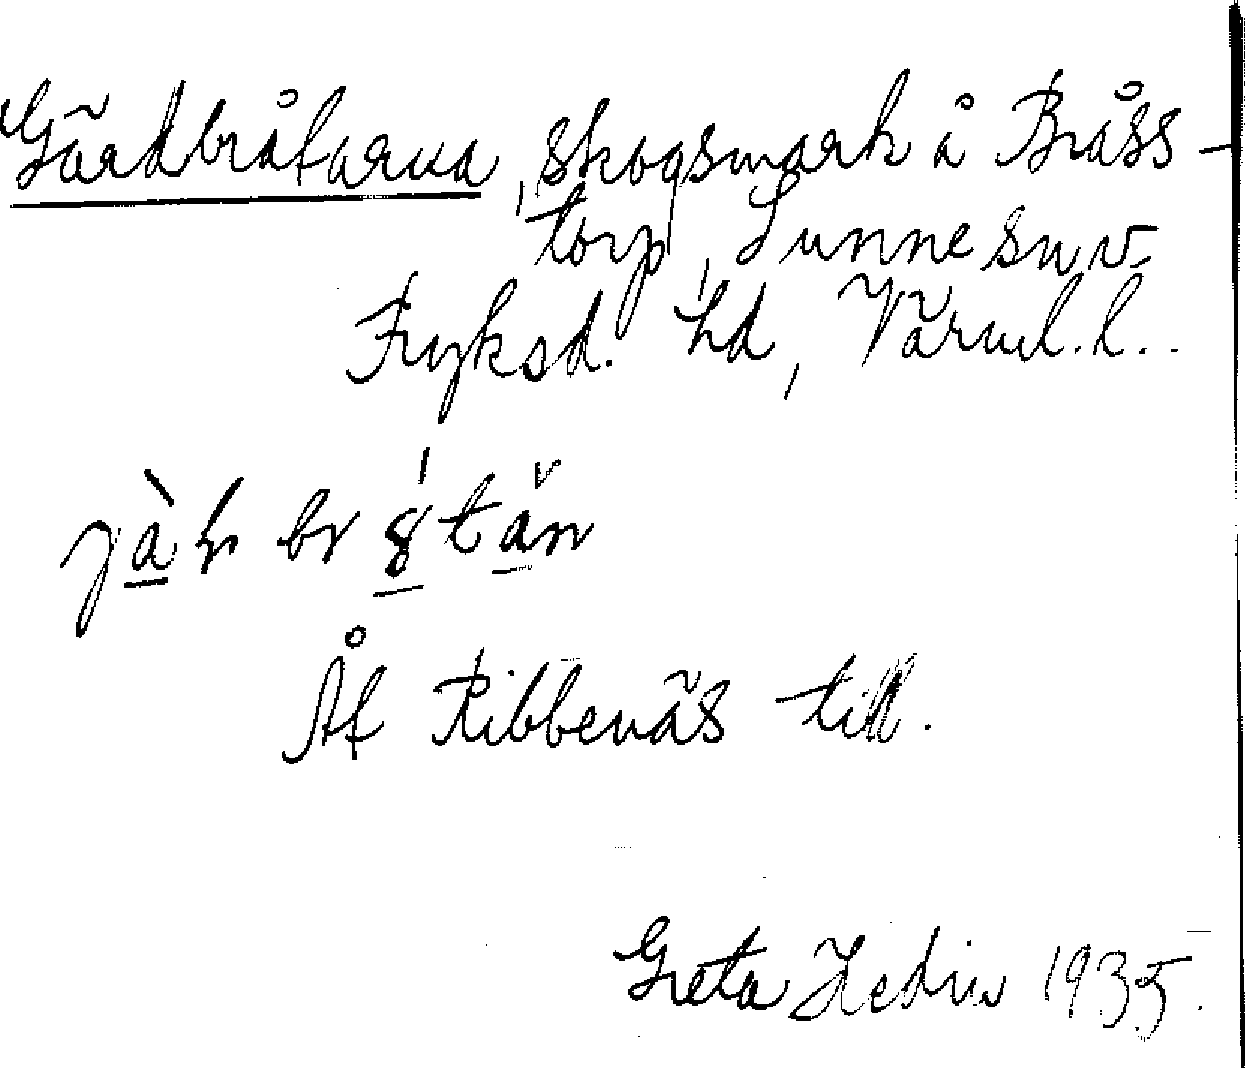 Gärdbråtarna, skogsmark å Bråss-
torp, Sunne sn v.
Fryksd. hd, Värml. l..
Åt Ribbenäs till.
Greta Hedin 1935.